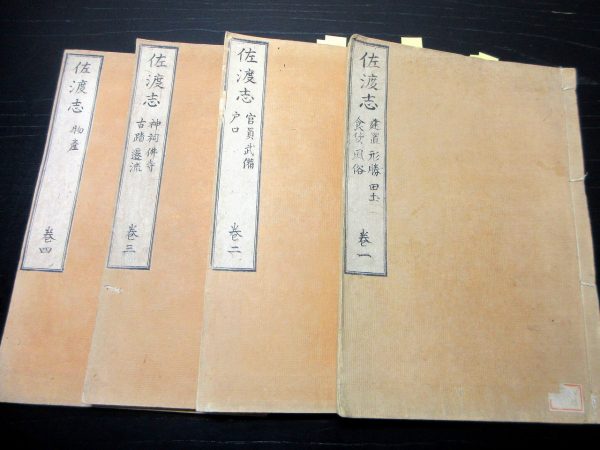 佐渡志
建置 形勝 田土
食貨 風俗
巻一
佐渡志
官員 武備
戸口
巻二
佐渡志
神祠 佛寺
古蹟 遷流
巻三
佐渡志
物産
巻四